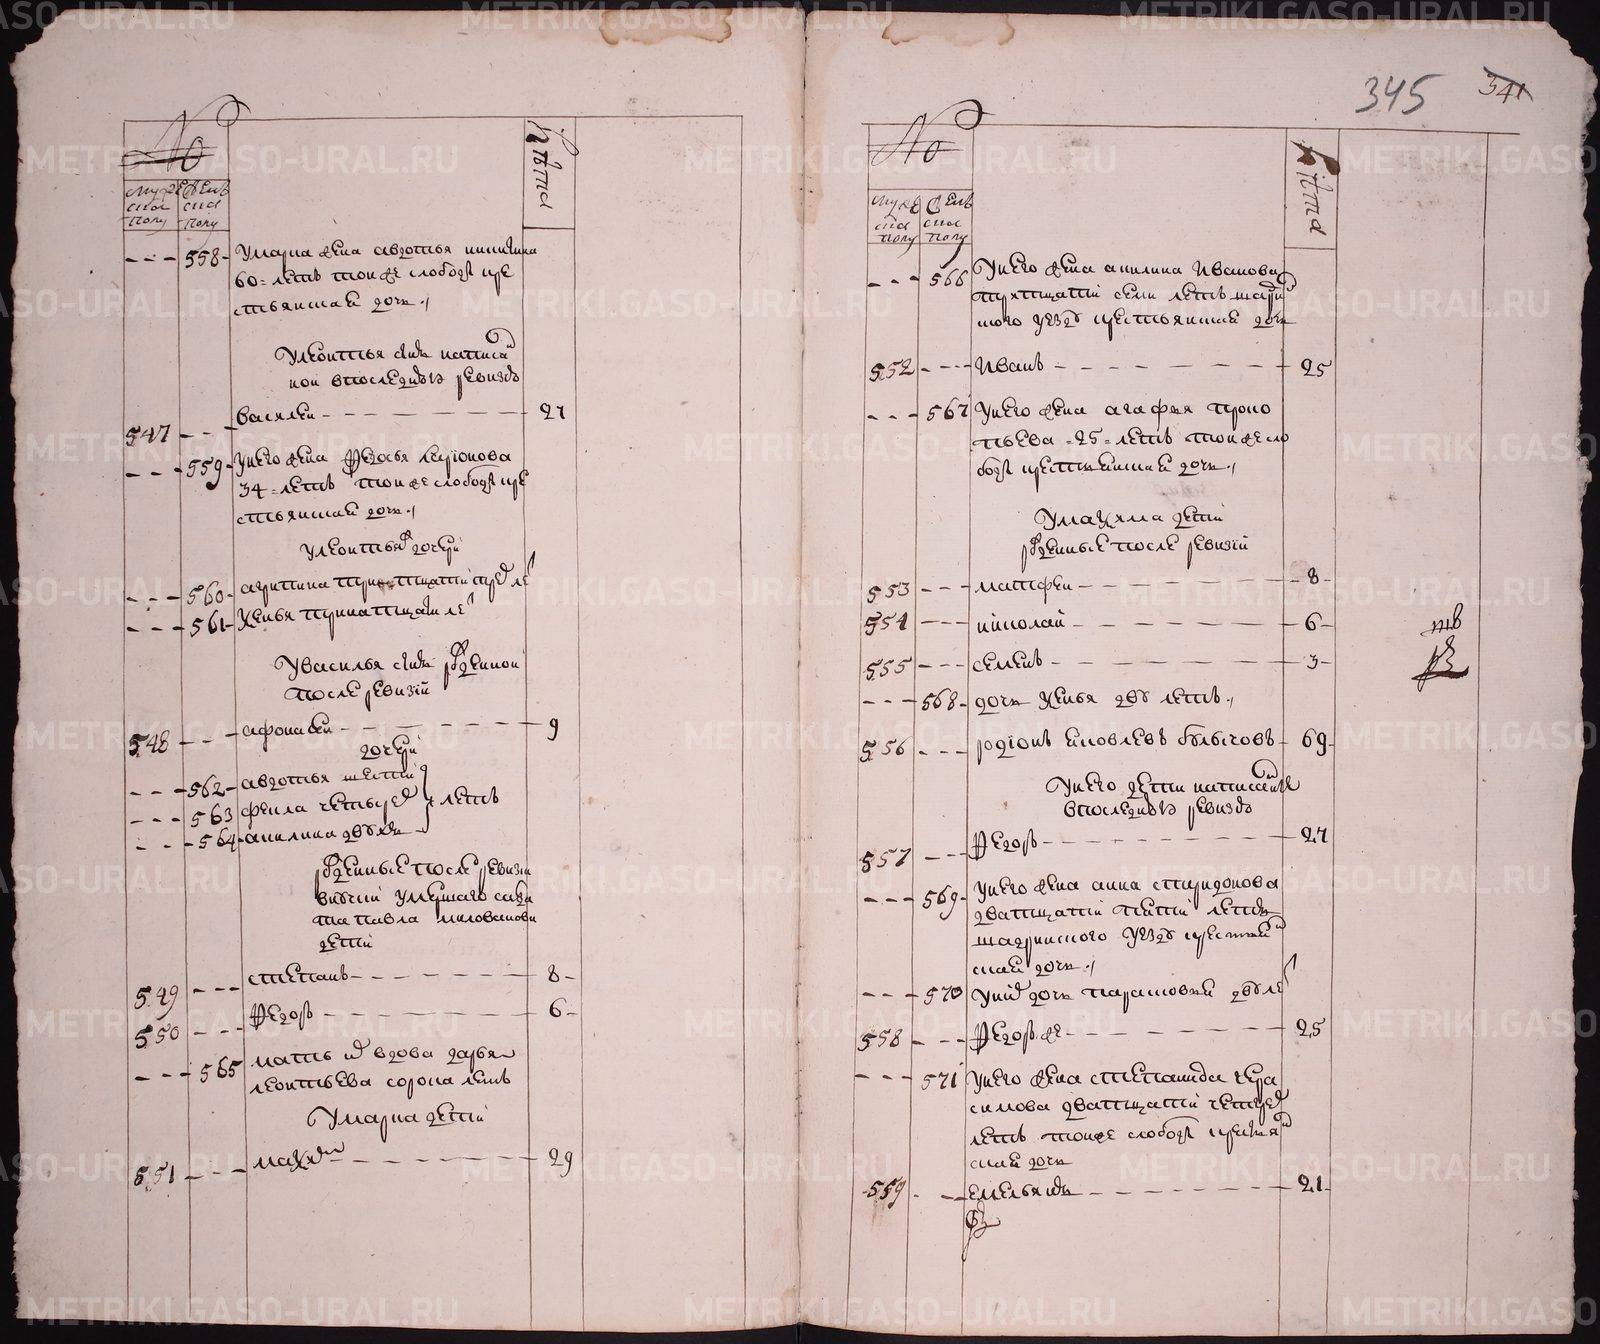 №
мужеска полу
женска полу
лѣта
558 Умарка жена авдотья никитина
60 = летъ тоиже слободы кре
стьянская дочь
Улеонтья сынъ написа
нои впоследнюю ревизию
547 василеи 27
559 унего жена Федосья ларионова
34 = летъ тоиже слободы кре
стьянская дочь
улеонтья дочери
560
561 Ксенья тринатцати ле
Увасилья сынъ рожденнои
после ревизии
548 афонасеи 9
дочери
562 авдотья шести
563 фекла четырех летъ
564 акилина двухъ
рожденные после ревизии
умершаго
павла милованова
дети
549 степанъ 8
550 Федоръ 6
565 мать их вдова дарья
леонтьева сорока летъ
Умарка дети
551 максимъ 29
345
341
№
мужеска полу
женска полу
лѣта
566 Унего жена акилина Иванова
тритцати семи летъ шадрин
ского уезду крестьянская дочь
552 Иванъ 25
567 Унего жена агафья проко
пьева = 25 = летъ тоиже сло
боды крестьянская дочь
Умаксима дети
рожденные после ревизии
553 матфеи 8
554 николаи 6
555 семенъ 3
568 дочь Ксенья двухъ летъ
556 родионъ яковлевъ булычовъ 69
Унего дети написанные
впоследнюю ревизию
557 Федоръ 27
569 Унего жена анна спиридонова
дватцати пяти летъ
шадринского уезду крестьян
ская дочь
570 Уних дочь парасковья двухъ ле
558 Федоръ же 25
571 Унего жена степанида гера
симова дватцати четырех
летъ тоиже слободы крестьян
ская дочь
559 емельянъ 21
METRIKI.GASO-URAL.RU